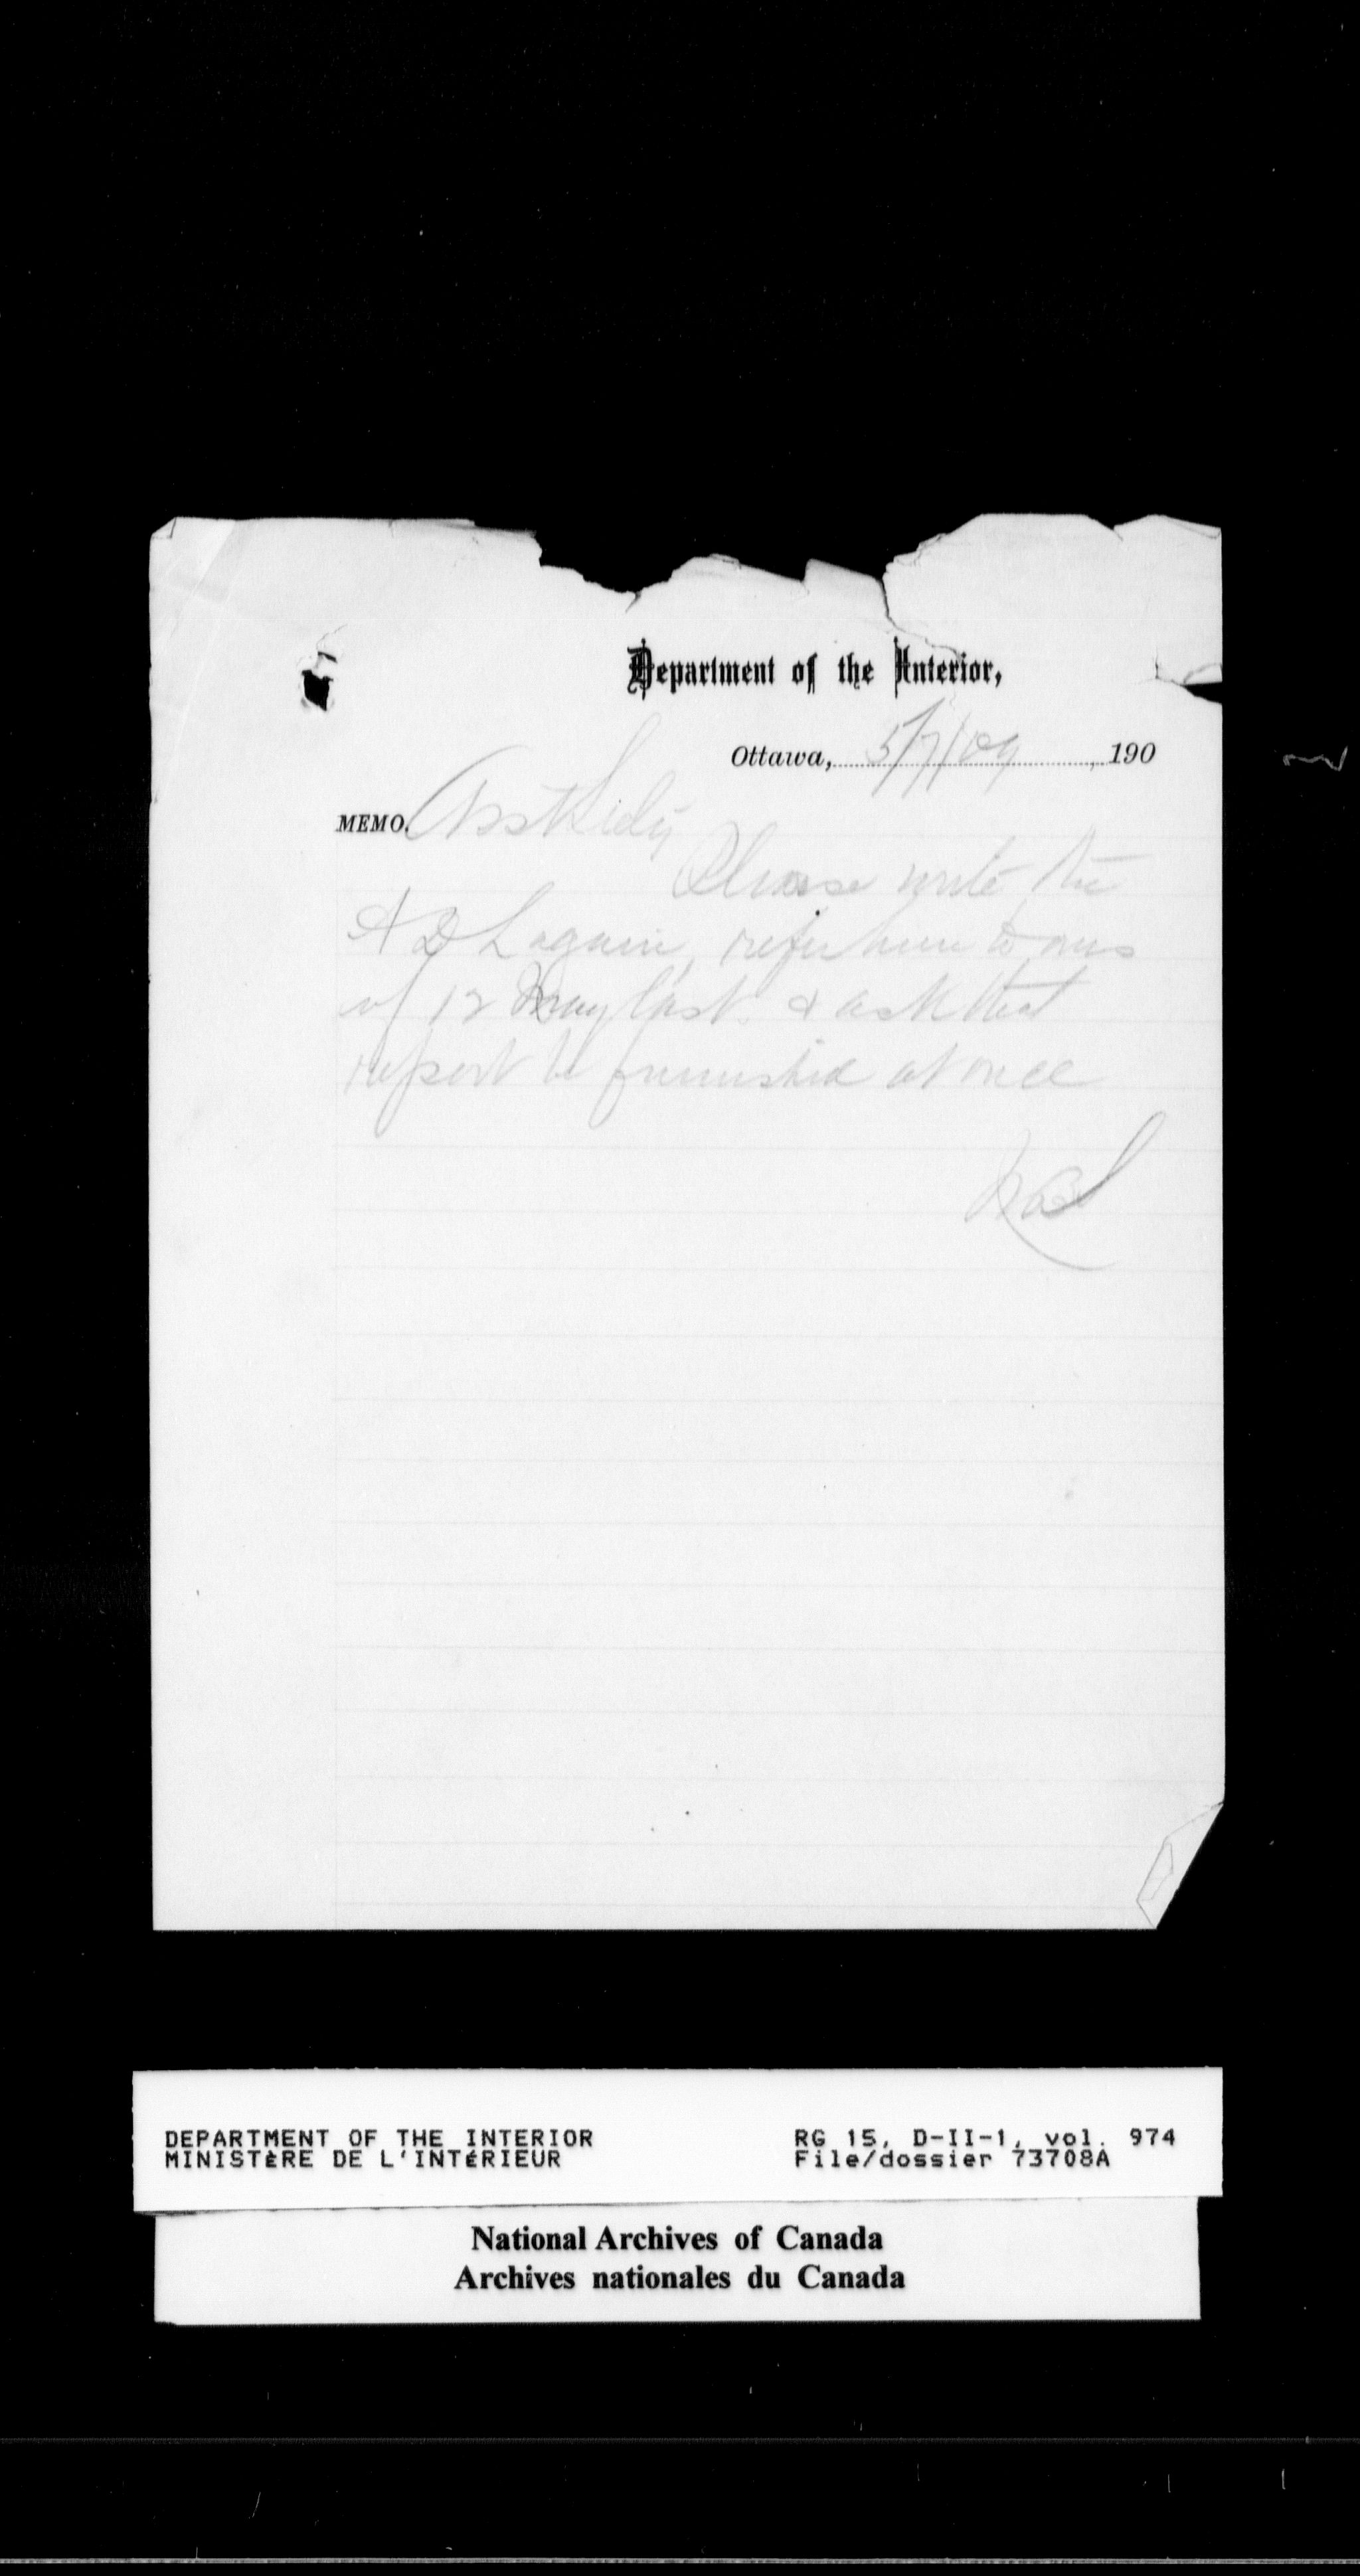 Department of the Interior,
Ottawa, 5/7/09, 190
MEMO. Asst Secty
Please write the
A D L again, refer him to ours
of 12 May last. & ask that
report be furnished at once
DEPARTMENT OF THE INTERIOR RG 15, D-II-1, vol. 974
MINISTÈRE DE L'INTÉRIEUR File/dossier 73708A
National Archives of Canada
Archives nationales du Canada